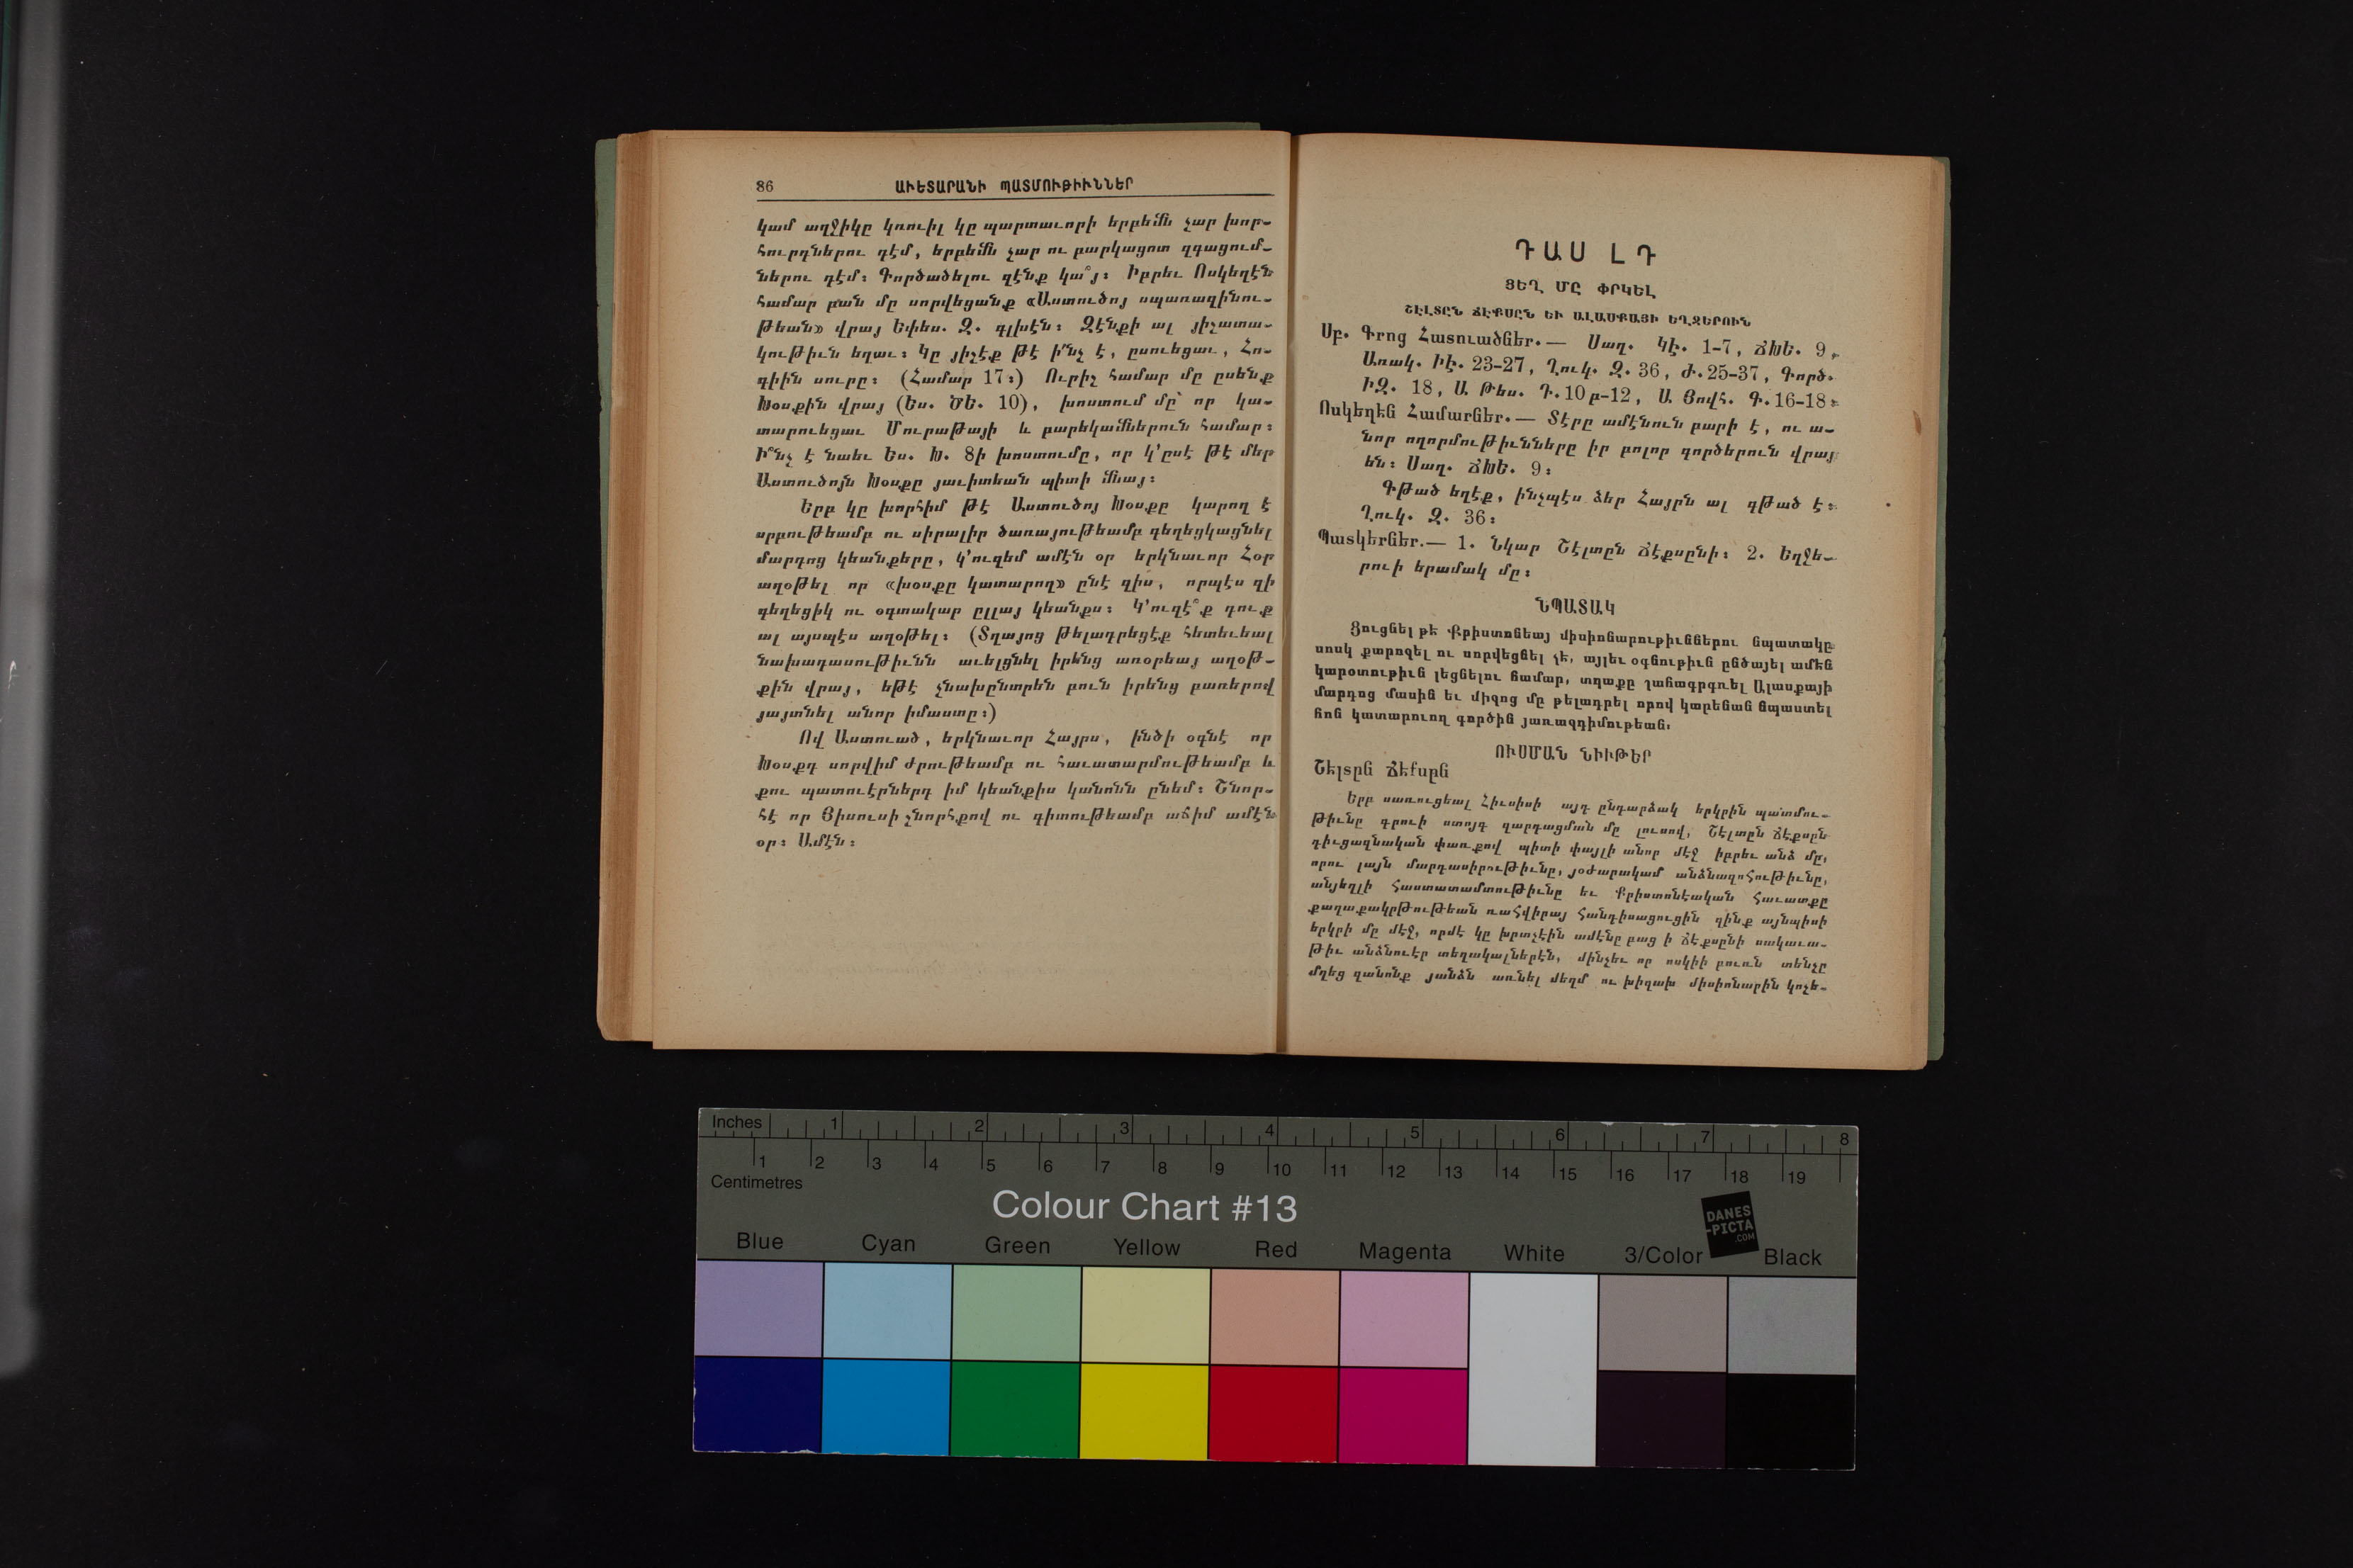 86
ԱՒԵՏԱՐԱՆԻ ՊԱՏՄՈՒԹԻՒՆՆԵՐ
կամ աղջիկը կռուիլ կը պարտաւորի երբեմն չար խոր-
հուրդներու դէմ, երբեմն չար ու բարկացոտ զգացում-
ներու դէմ։ Գործածելու զէնք կա՞յ։ Իբրեւ Ոսկեղէն
համար բան մը սորվեցանք «Աստուծոյ սպառազինու-
թեան» վրայ Եփես. Զ. գլխէն։ Զէնքի ալ յիշատա-
կութիւն եղաւ։ Կը յիշէք թէ ի՛նչ է, ըսուեցաւ, Հո-
գիին սուրը։ (Համար 17։) Ուրիշ համար մը ըսենք
Խօսքին վրայ (Ես. ԾԵ. 10), խոստում մը՝ որ կա-
տարուեցաւ Մուրաթայի և բարեկամներուն համար։
Ի՞նչ է նաեւ Ես. Խ. 8ի խոստումը, որ կ'ըսէ թէ մեր
Աստուծոյն Խօսքը յաւիտեան պիտի մնայ։
Երբ կը խորհիմ թէ Աստուծոյ Խօսքը կարող է
սրբութեամբ ու սիրալիր ծառայութեամբ գեղեցկացնել
մարդոց կեանքերը, կ'ուզեմ ամէն օր երկնաւոր Հօր
աղօթել որ «խօսքը կատարող» ընէ զիս, որպէս զի
գեղեցիկ ու օգտակար ըլլայ կեանքս։ Կ'ուզէ՞ք դուք
ալ այսպէս աղօթել։ (Տղայոց թելադրեցէք հետեւեալ
նախադասութիւնն աւելցնել իրենց առօրեայ աղօթ-
քին վրայ, եթէ չնախընտրեն բուն իրենց բառերով
յայտնել անոր իմաստը։)
Ով Աստուած, երկնաւոր Հայրս, ինծի օգնէ որ
Խօսքդ սորվիմ ժրութեամբ ու հաւատարմութեամբ և
քու պատուէրներդ իմ կեանքիս կանոնն ընեմ։ Շնոր-
հէ որ Յիսուսի շնորհքով ու գիտութեամբ աճիմ ամէն
օր։ Ամէն։
ԴԱՍ ԼԴ
ՑԵՂ ՄԸ ՓՐԿԵԼ
ՇԷԼՏԸՆ ՃԷՔՍԸՆ ԵՒ ԱԼԱՍՔԱՅԻ ԵՂՋԵՐՈՒՆ
Սբ. Գրոց Հատուածներ.— Սաղ. ԿԷ. 1-7, ՃԽԵ. 9,
Առակ. ԻԷ. 23-27, Ղուկ. Զ. 36, Ժ. 25-37, Գործ.
ԻԶ. 18, Ա. Թես. Դ. 10բ-12, Ա. Յովհ. Գ. 16-18։
Ոսկեղէն Համարներ.— Տէրը ամէնուն բարի է, ու ա-
նոր ողորմութիւնները իր բոլոր գործերուն վրայ
են։ Սաղ. ՃԽԵ. 9։
Գթած եղէք, ինչպէս ձեր Հայրն ալ գթած է։
Ղուկ. Զ. 36։
Պատկերներ.— 1. Նկար Շէլտըն Ճէքսընի։ 2. Եղջե-
րուի երամակ մը։
ՆՊԱՏԱԿ
Ցուցնել թէ Քրիստոնեայ միսիոնարութիւններու նպատակը
սոսկ քարոզել ու սորվեցնել չէ, այլեւ օգնութիւն ընծայել ամէն
կարօտութիւն լեցնելու համար, տղաքը շահագրգռել Ալասքայի
մարդոց մասին եւ միջոց մը թելադրել որով կարենան նպաստել
հոն կատարուող գործին յառաջդիմութեան։
ՈՒՍՄԱՆ ՆԻՒԹԵՐ
Շէլտըն Ճէքսըն
Երբ սառուցեալ Հիւսիսի այդ ընդարձակ երկրին պատմու-
թիւնը գրուի ստոյգ զարգացման մը լուսով, Շէլտըն Ճէքսըն
դիւցազնական փառքով պիտի փայլի անոր մէջ իբրեւ անձ մը,
որու լայն մարդասիրութիւնը, յօժարակամ անձնազոհութիւնը,
անյեղլի հաստատամտութիւնը եւ Քրիստոնէական հաւատքը
քաղաքակրթութեան ռահվիրայ հանդիսացուցին զինք այնպիսի
երկրի մը մէջ, որմէ կը խրտչէին ամէնը բաց ի Ճէքսընի սակաւա-
թիւ անձնուէր տեղակալներէն, մինչեւ որ ոսկիի բուռն տենչը
մղեց զանոնք յանձն առնել մեղմ ու խիզախ միսիոնարին կոչե-
Inches 1 2 3 4 5 6 7 8
1 2 3 4 5 6 7 8 9 10 11 12 13 14 15 16 17 18 19
Centimetres
Colour Chart #13
DANES
-PICTA
.COM
Blue Cyan Green Yellow Red Magenta White 3/Color Black